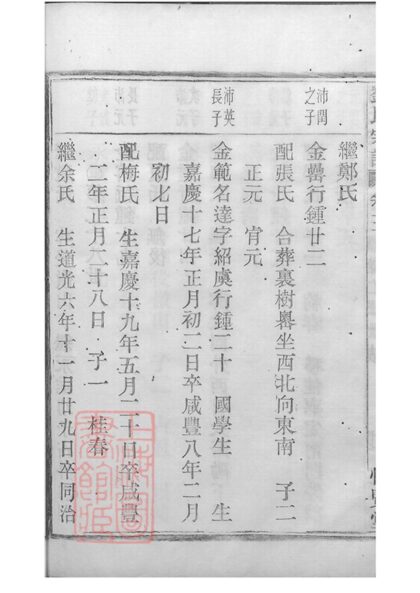 繼鄭氏
沛閏之子
金罍行鍾廿二
配張氏 合葬裏樹畧坐西北向東南 子二
正元 官元
沛英長子
金範名達字紹虞行鍾二十 國學生 生
嘉慶十七年正月初二日卒咸豐八年二月
初七日
配梅氏 生嘉慶十九年五月二十日卒咸豐
二年正月二十八日 子一 桂春
繼余氏 生道光六年十一月廿九日卒同治